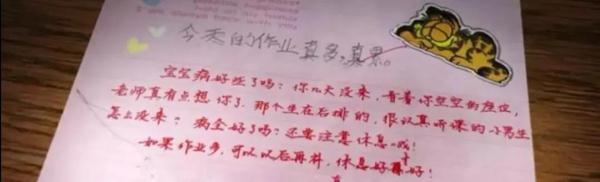 I am always here with you
今天的作业真多，真累。
宝宝病好些了吗？你几天没来，看着你空空的座位，
老师真有点想你了，那个坐在后排的，很认真听课的小男生
怎么没来？病全好了吗？还要注意休息哦！
如果作业多，可以以后再补，休息好才好！